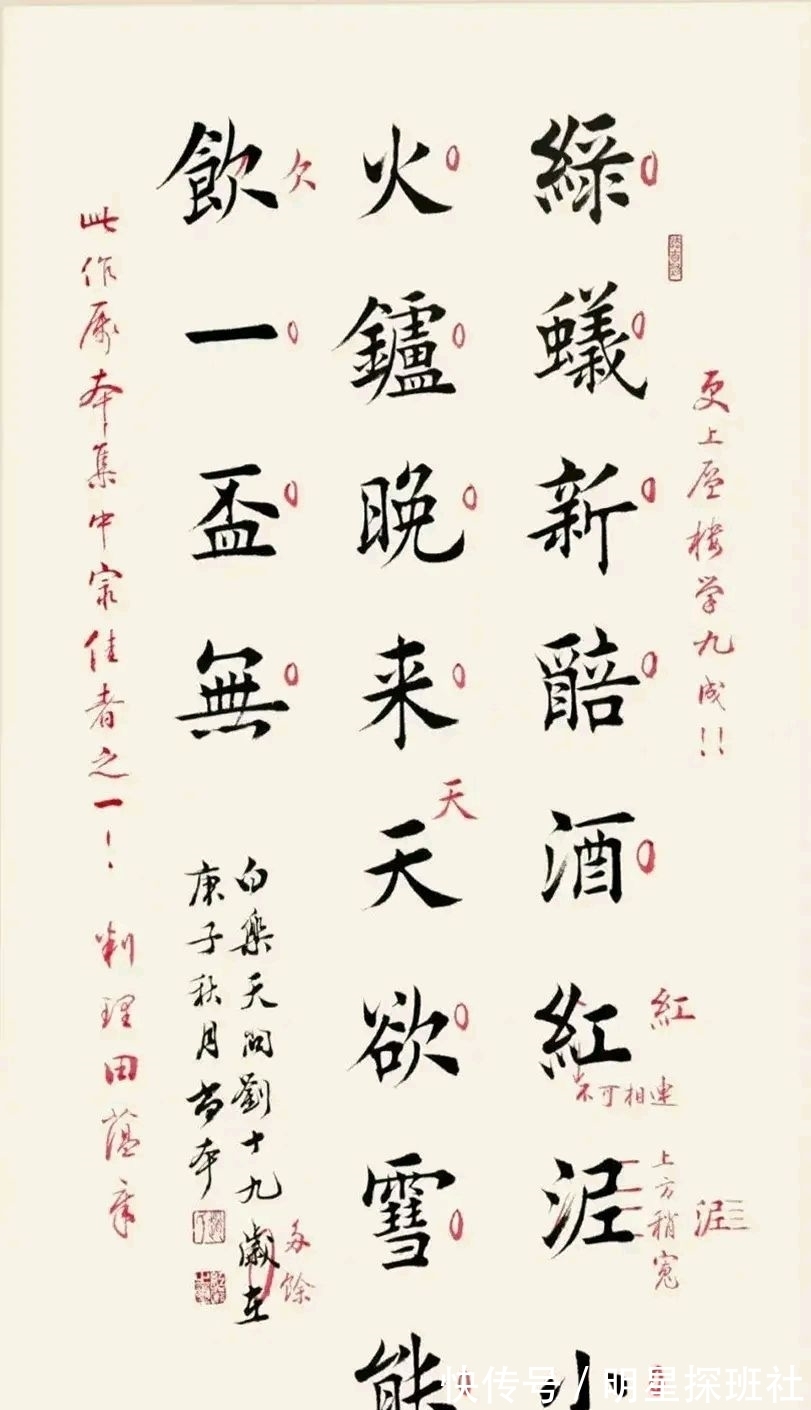 更上层楼学九成!!
綠蟻新醅酒紅泥小
紅
不可相連
上方稍寬
泥
火鑪晚来天欲雪能
天
飲一盃無
欠
白樂天問劉十九歲在
多餘
庚子秋月
此作屬本集中最佳者之一! 判理田蘊章
快传号 / 明星探班社